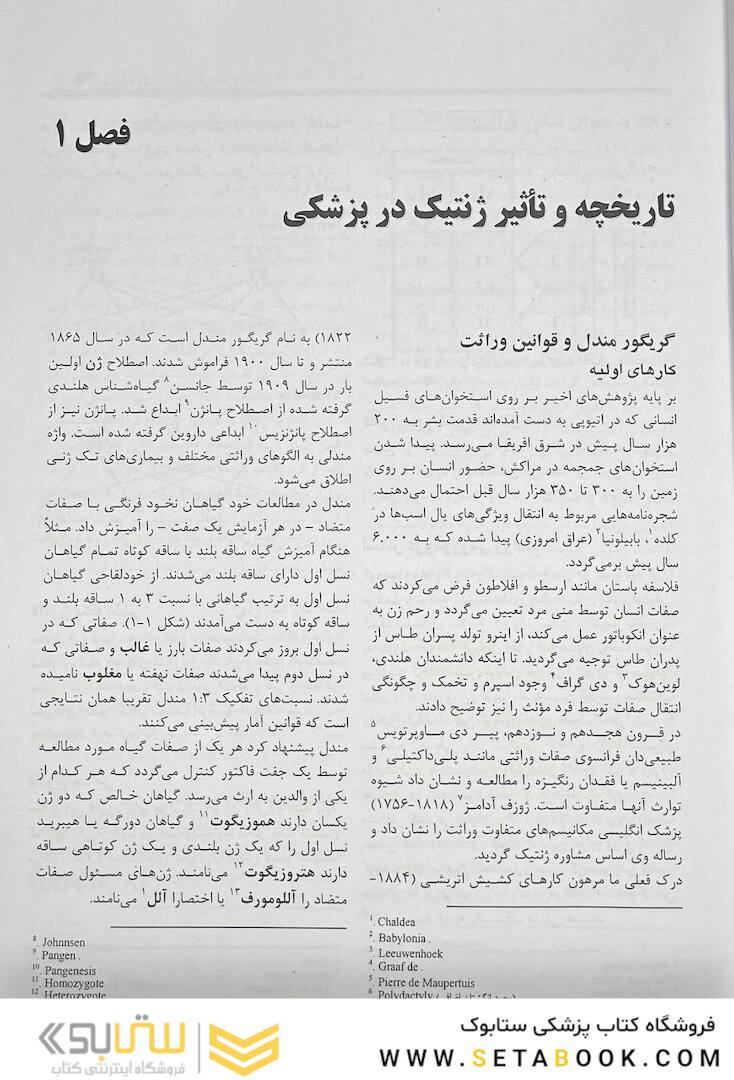 فصل ۱
تاریخچه و تأثیر ژنتیک در پزشکی
گریگور مندل و قوانین وراثت
کارهای اولیه
بر پایه پژوهش‌های اخیر بر روی استخوان‌های فسیل
انسانی که در اتیوپی به دست آمده‌اند قدمت بشر به ۲۰۰
هزار سال پیش در شرق افریقا می‌رسد. پیدا شدن
استخوان‌های جمجمه در مراکش، حضور انسان بر روی
زمین را به ۳۰۰ تا ۳۵۰ هزار سال قبل احتمال می‌دهند.
شجره‌نامه‌هایی مربوط به انتقال ویژگی‌های یال اسب‌ها در
کلده۱، بابیلونیا۲ (عراق امروزی) پیدا شده که به ۶.۰۰۰
سال پیش برمی‌گردد.
فلاسفه باستان مانند ارسطو و افلاطون فرض می‌کردند که
صفات انسان توسط منی مرد تعیین می‌گردد و رحم زن به
عنوان انکوباتور عمل می‌کند، از اینرو تولد پسران طاس از
پدران طاس توجیه می‌گردید. تا اینکه دانشمندان هلندی،
لوین‌هوک۳ و دی گراف۴ وجود اسپرم و تخمک و چگونگی
انتقال صفات توسط فرد مؤنث را نیز توضیح دادند.
در قرون هجدهم و نوزدهم، پیر دی ماوپرتویس۵
طبیعی‌دان فرانسوی صفات وراثتی مانند پلی‌داکتیلی۶ و
آلبینیسم یا فقدان رنگیزه را مطالعه و نشان داد شیوه
توارث آنها متفاوت است. ژوزف آدامز۷ (۱۸۱۸-۱۷۵۶)
پزشک انگلیسی مکانیسم‌های متفاوت وراثت را نشان داد و
رساله وی اساس مشاوره ژنتیک گردید.
درک فعلی ما مرهون کارهای کشیش اتریشی (۱۸۸۴-
1. Chaldea
2. Babylonia .
3. Leeuwenhoek
4. Graaf de .
5. Pierre de Maupertuis
6. Polydactyly
۱۸۲۲) به نام گریگور مندل است که در سال ۱۸۶۵
منتشر و تا سال ۱۹۰۰ فراموش شدند. اصطلاح ژن اولین
بار در سال ۱۹۰۹ توسط جانسن۸ گیاه‌شناس هلندی
گرفته شده از اصطلاح پانژن۹ ابداع شد. پانژن نیز از
اصطلاح پانژنزیس۱۰ ابداعی داروین گرفته شده است. واژه
مندلی به الگوهای وراثتی مختلف و بیماری‌های تک ژنی
اطلاق می‌شود.
مندل در مطالعات خود گیاهان نخود فرنگی با صفات
متضاد – در هر آزمایش یک صفت – را آمیزش داد. مثلاً
هنگام آمیزش گیاه ساقه بلند با ساقه کوتاه تمام گیاهان
نسل اول دارای ساقه بلند می‌شدند. از خودلقاحی گیاهان
نسل اول به ترتیب گیاهانی با نسبت ۳ به ۱ ساقه بلند و
ساقه کوتاه به دست می‌آمدند (شکل ۱-۱). صفاتی که در
نسل اول بروز می‌کردند صفات بارز یا غالب و صفاتی که
در نسل دوم پیدا می‌شدند صفات نهفته یا مغلوب نامیده
شدند. نسبت‌های تفکیک ۱:۳ مندل تقریبا همان نتایجی
است که قوانین آمار پیش‌بینی می‌کنند.
مندل پیشنهاد کرد هر یک از صفات گیاه مورد مطالعه
توسط یک جفت فاکتور کنترل می‌گردد که هر کدام از
یکی از والدین به ارث می‌رسد. گیاهان خالص که دو ژن
یکسان دارند هموزیگوت۱۱ و گیاهان دورگه یا هیبرید
نسل اول را که یک ژن بلندی و یک ژن کوتاهی ساقه
دارند هتروزیگوت۱۲ می‌نامند. ژن‌های مسئول صفات
متضاد را آللومورف۱۳ یا اختصارا آلل۱ می‌نامند.
8. Johnnsen
9. Pangen .
10. Pangenesis
11. Homozygote
12. Heterozygote
فروشگاه کتاب پزشکی ستابوک
WWW.SETABOOK.COM
ستابوک
فروشگاه اینترنتی کتاب